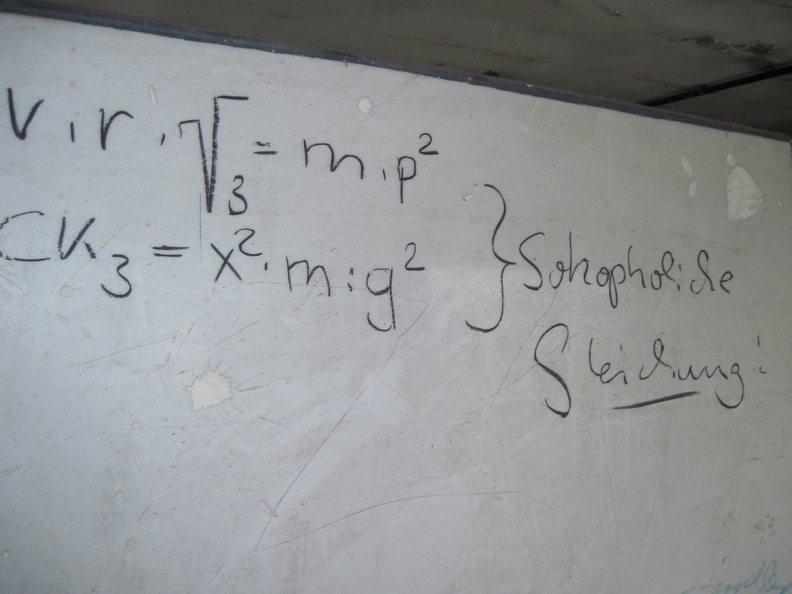 V . r . √3 = m . p²
CK₃ = x² . m : g²
} Sokopholische
Gleichung!